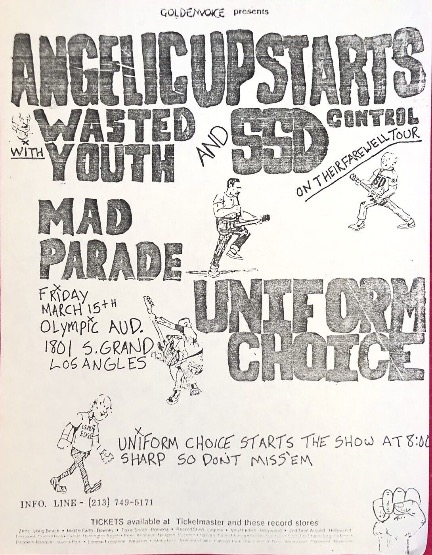 GOLDENVOICE presents
ANGELIC UPSTARTS
WITH WASTED YOUTH AND SSD CONTROL
ON THEIR FAREWELL TOUR
MAD PARADE
UNIFORM CHOICE
FRIDAY
MARCH 15TH
OLYMPIC AUD.
1801 S. GRAND
LOS ANGLES
UNIFORM CHOICE STARTS THE SHOW AT 8:00
SHARP SO DON'T MISS'EM
INFO. LINE - (213) 749-5171
TICKETS available at Ticketmaster and these record stores